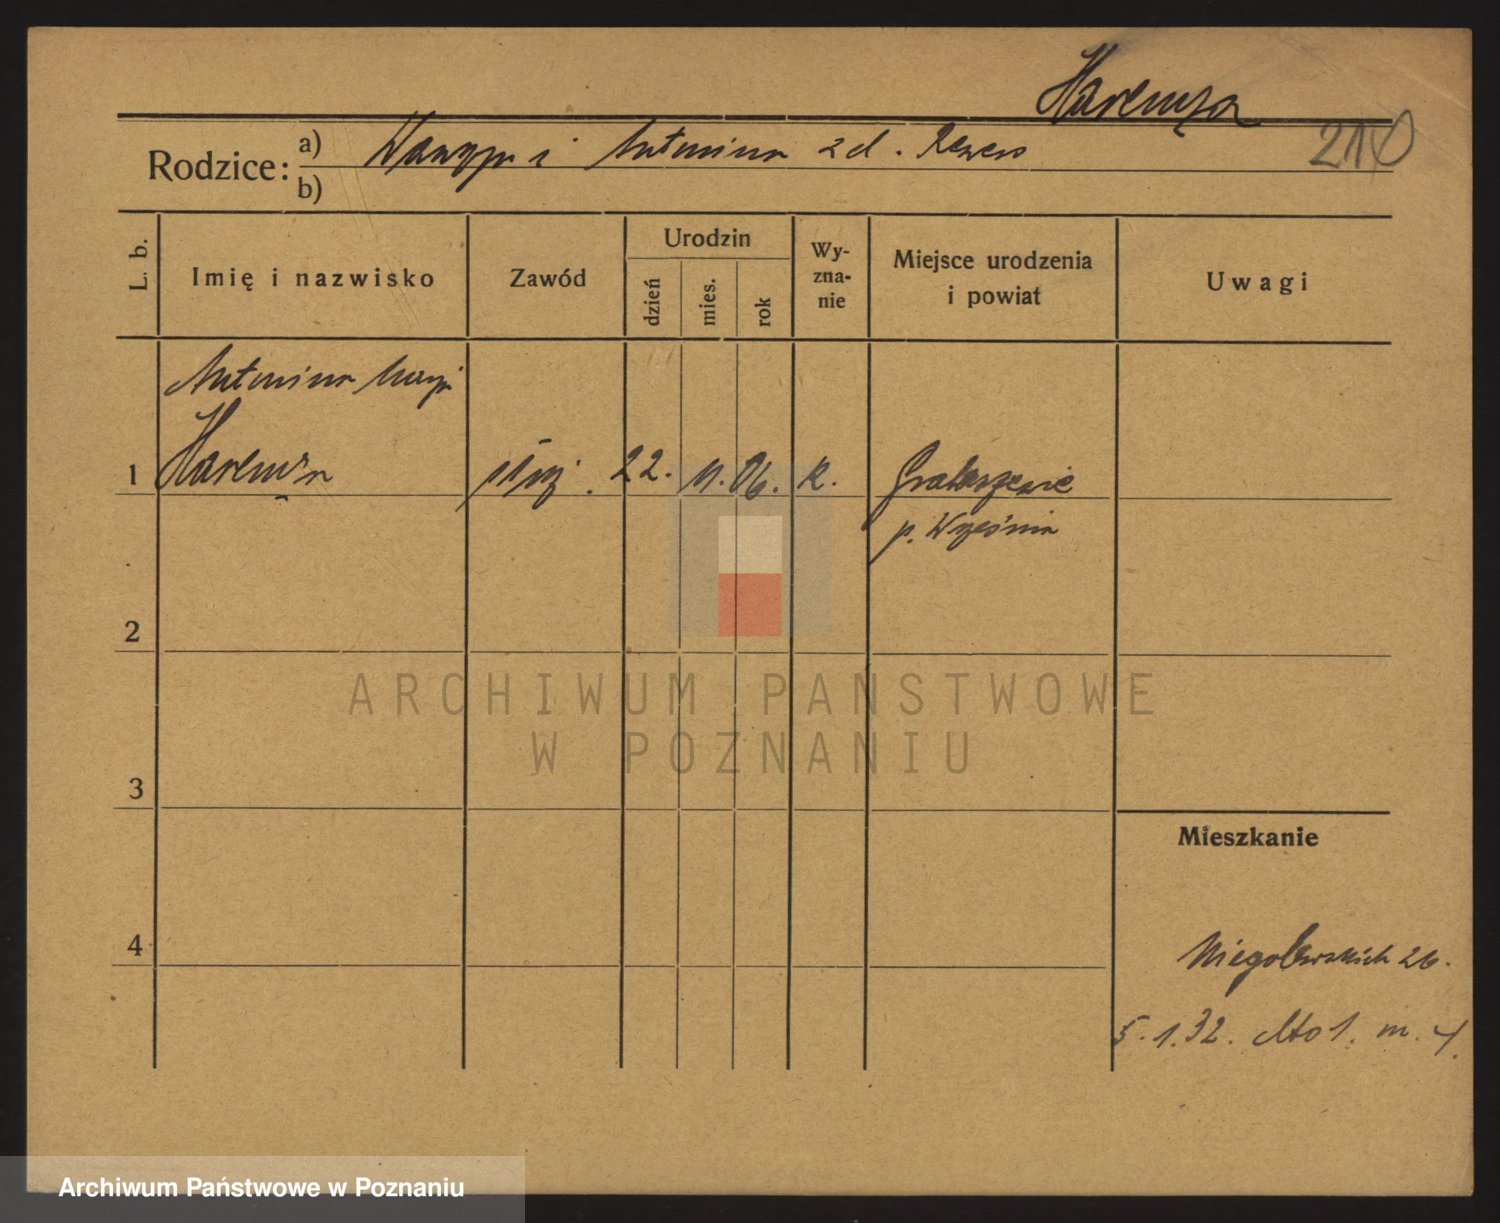 Haremza
210
Rodzice: a) Wawrzyn i Antonina zd. Rewers
b)
L. b.
Imię i nazwisko
Zawód
Urodzin
dzień
mies.
rok
Wy-
zna-
nie
Miejsce urodzenia
i powiat
Uwagi
Antonina Marja
1 Haremza służ. 22. 11. 06. k. Graboszewie
p. Września
2
3
4
Mieszkanie
Niegolewskich 26.
5.1.32. m. 4.
ARCHIWUM PAŃSTWOWE
W POZNANIU
Archiwum Państwowe w Poznaniu